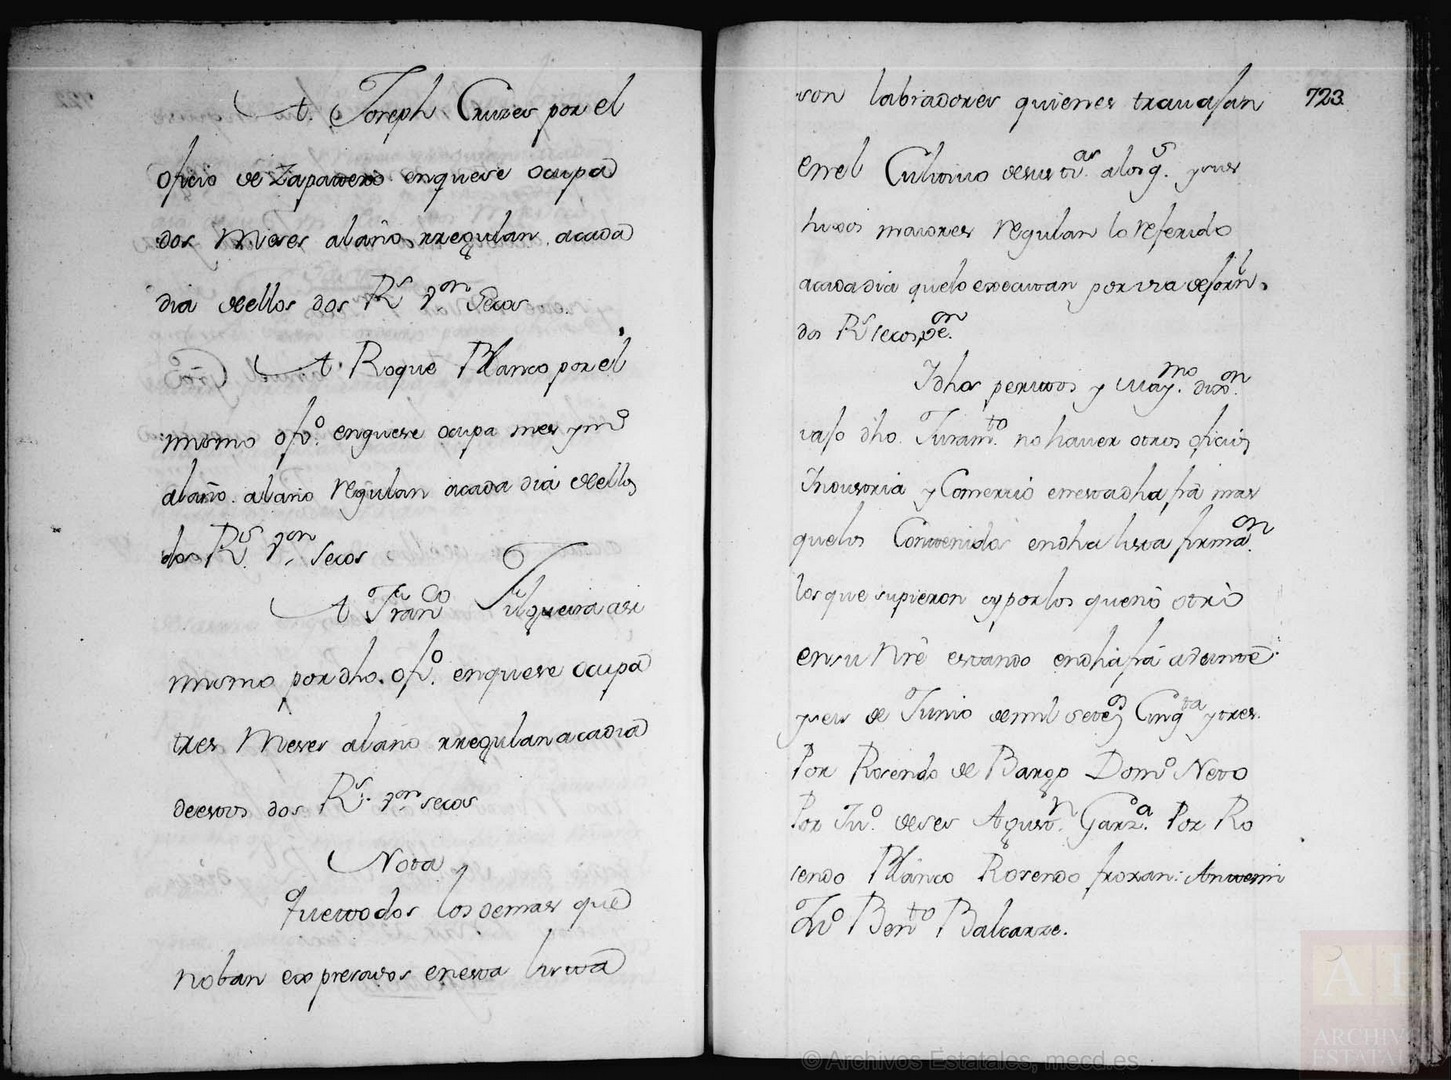 A Joseph Cruzes por el
oficio de Zapatero enquese ocupa
dos Meses alaño, rregulan acada
dia dellos dos Rs von Secos.
A Roque Blanco por el
mismo ofo. enquese ocupa mes ymo
alaño. alaño regulan acada dia dellos
dos Rs. von Secos
A Franco Silgueira asi
mismo por dho. ofo. enquese ocupa
tres Meses alaño rregulan acadia
deestos dos Rs. von secos
Nota
Quetodos los demas que
noban expresados enesta lista
son labradores quienes trauajan
723.
enel Cultivo desus
hijos maiores regulan lo referido
acada dia quelo executan por via dejornl.
dos Rs secos
Idhos peritos y
vajo dho. Juramto. no hauer otros oficios
Industria y Comercio enestadha fra mas
quelos Contenidos endha lista firmaon.
los que supieron y porlos queno otro
ensu Nre estando endhafra adiente
yseis de Junio demil setesos Cinqta ytres.
Por Rosendo de Bargo Domo Neto
Por Juo. deses Agustn. Garza. Por Ro
sendo Blanco Rosendo froxan: Antemi
Juo Bento Balcarze.
© Archivos Estatales, mecd.es
ARCHIVOS
ESTATALES